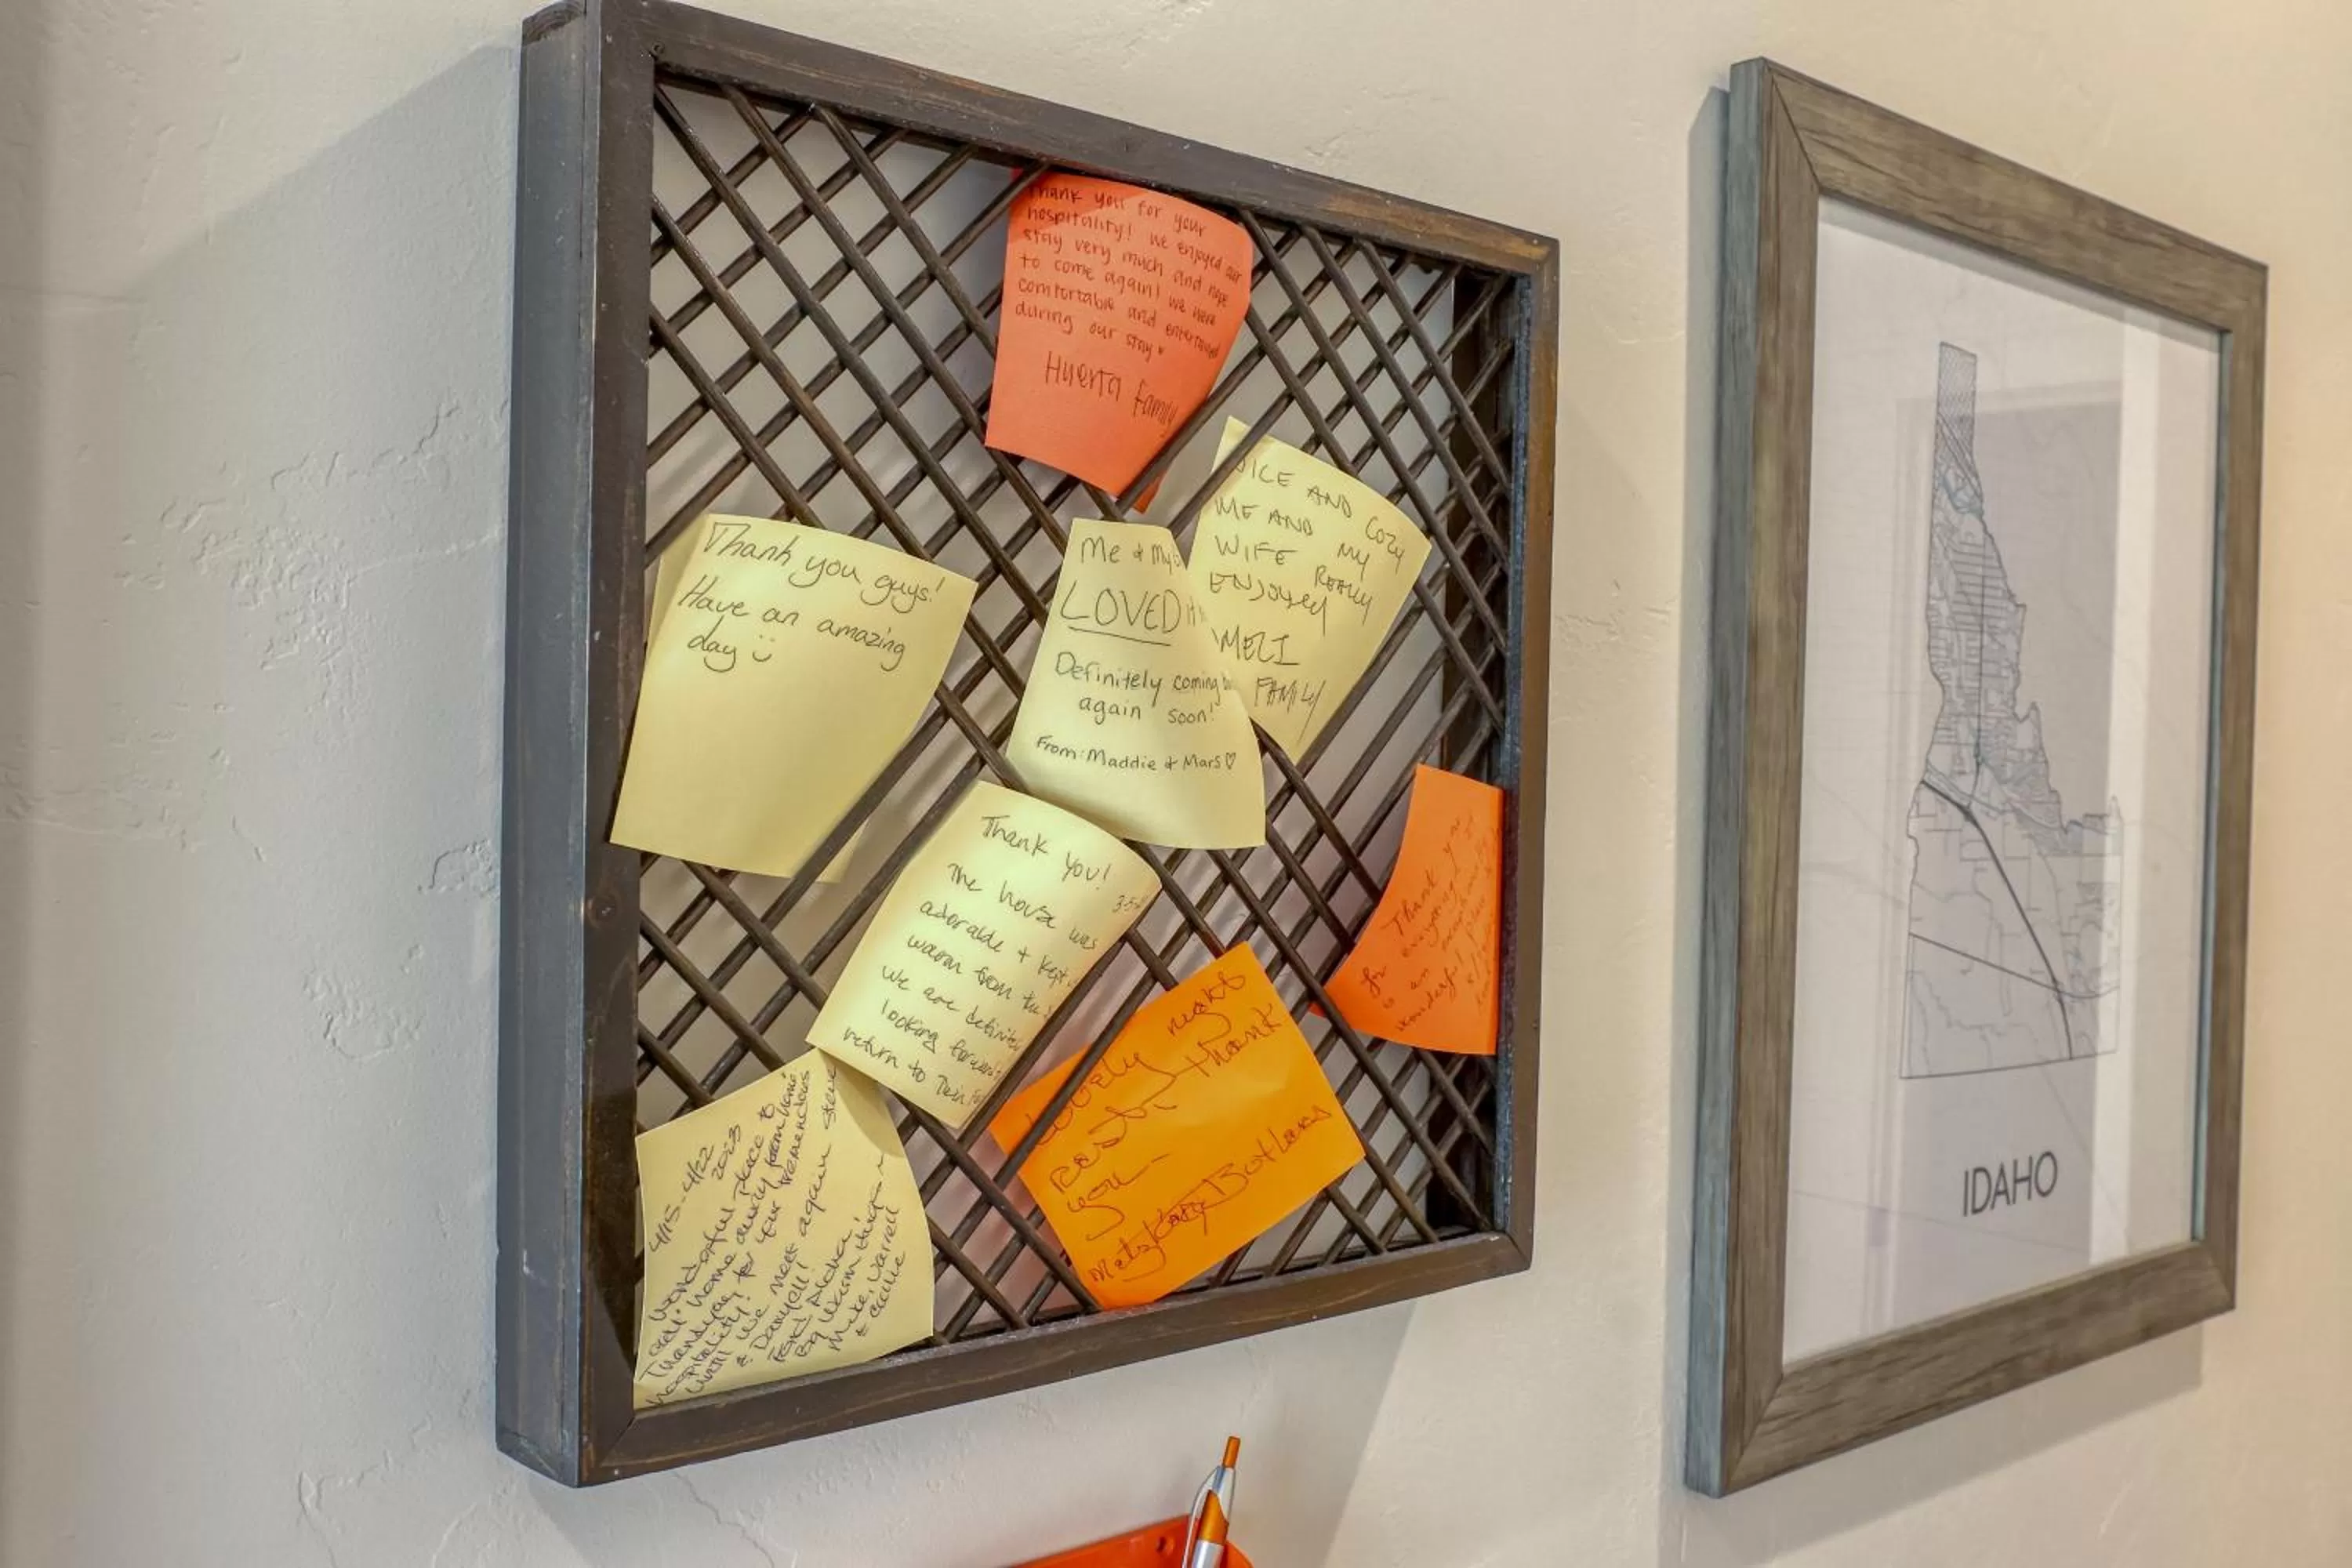 Thank you for your
hospitality! We enjoyed our
stay very much and hope
to come again! We were
comfortable and entertained
during our stay
Huerta family
NICE AND COZY
ME AND MY
WIFE REALLY
ENJOYED
MELI
FAMILY
Thank you guys!
Have an amazing
day
Me & My
LOVED
Definitely coming
again soon!
From: Maddie & Mars ♡
Thank you!
3-5
The house was
adorable + kept
warm from the
We are definitely
looking forward
return to Twin
Thank you
for everything!
is an
wonderful!
Lovely night
rest. thank
you
4/15-4/22
2023
Wonderful place to
call home away from home
Thank you for your tremendous
hospitality!
until we meet again Steve
& Danyell!
Fond Aloha,
Big Warm Hugs
Mike, Darrell
& Callie
IDAHO